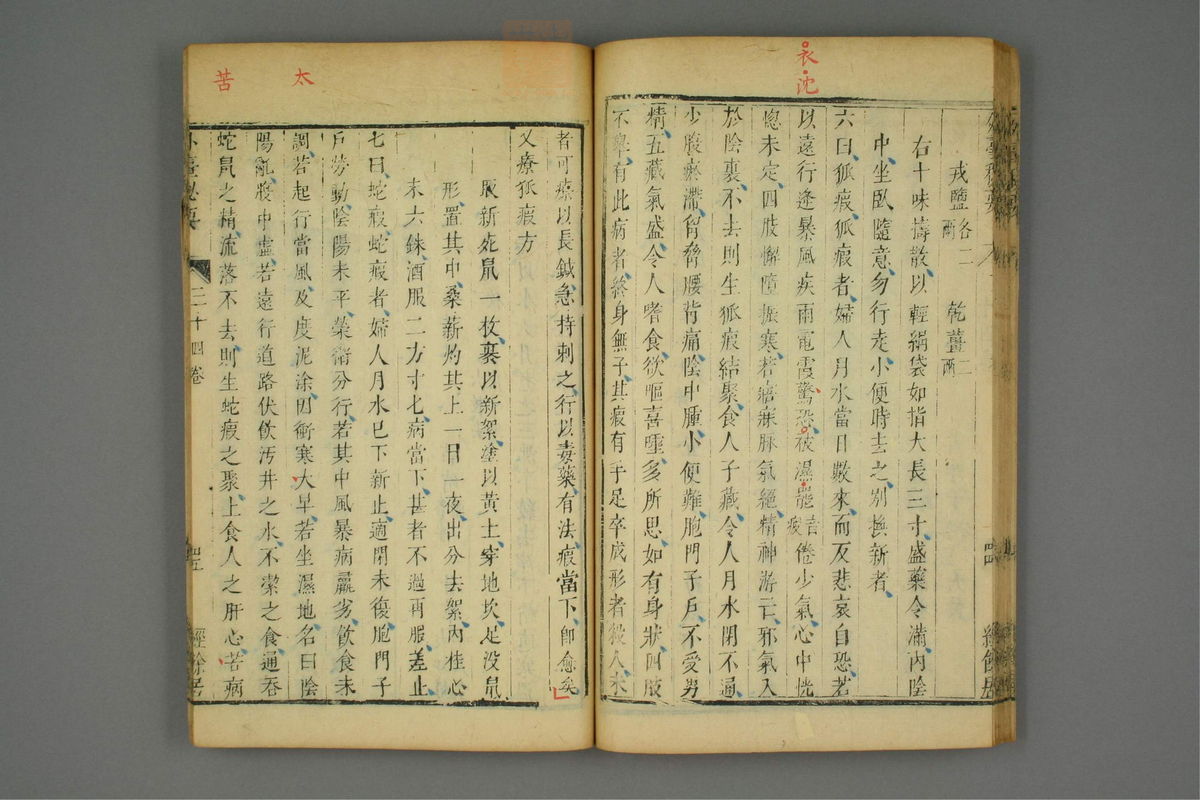 衣
沈
戎鹽各二兩 乾薑二兩
右十味擣散以輕絹袋如指大長三寸盛藥令滿內陰
中坐臥隨意勿行走小便時去之別換新者
六曰狐瘕狐瘕者婦人月水當日數來而反悲哀自恐若
以遠行逢暴風疾雨電霆驚恐被濕罷音疲倦少氣心中恍
惚未定四肢懈墮振寒若寤寐脉氣絕精神游亡邪氣入
於陰裏不去則生狐瘕結聚食人子藏令人月水閉不通
少腹瘀滯胷脅腰背痛陰中腫小便難胞門子戶不受男
精五藏氣盛令人嗜食欲嘔喜唾多所思如有身狀四肢
不舉有此病者終身無子其瘕有手足卒成形者殺人未
太
苦
者可療以長鍼急持刺之行以毒藥有法瘕當下即愈矣
又療狐瘕方
取新死鼠一枚裹以新絮塗以黃土穿地坎足没鼠
形置其中桑薪灼其上一日一夜出分去絮內桂心
末六銖酒服二方寸匕病當下甚者不過再服差止
七曰蛇瘕蛇瘕者婦人月水已下新止適閉未復胞門子
戶勞動陰陽未平榮衛分行若其中風暴病羸劣飲食未
調若起行當風及度泥涂因衝寒大旱若坐濕地名曰陰
陽亂腹中虛若遠行道路伏飲汚井之水不潔之食通吞
蛇鼠之精流落不去則生蛇瘕之聚上食人之肝心苦病
外臺秘要 三十四卷 經餘居